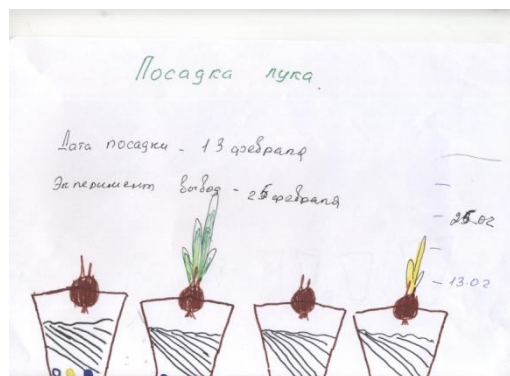 Посадка лука.
Дата посадки - 13 февраля
Эксперимент вывод - 25 февраля
25.02
13.02